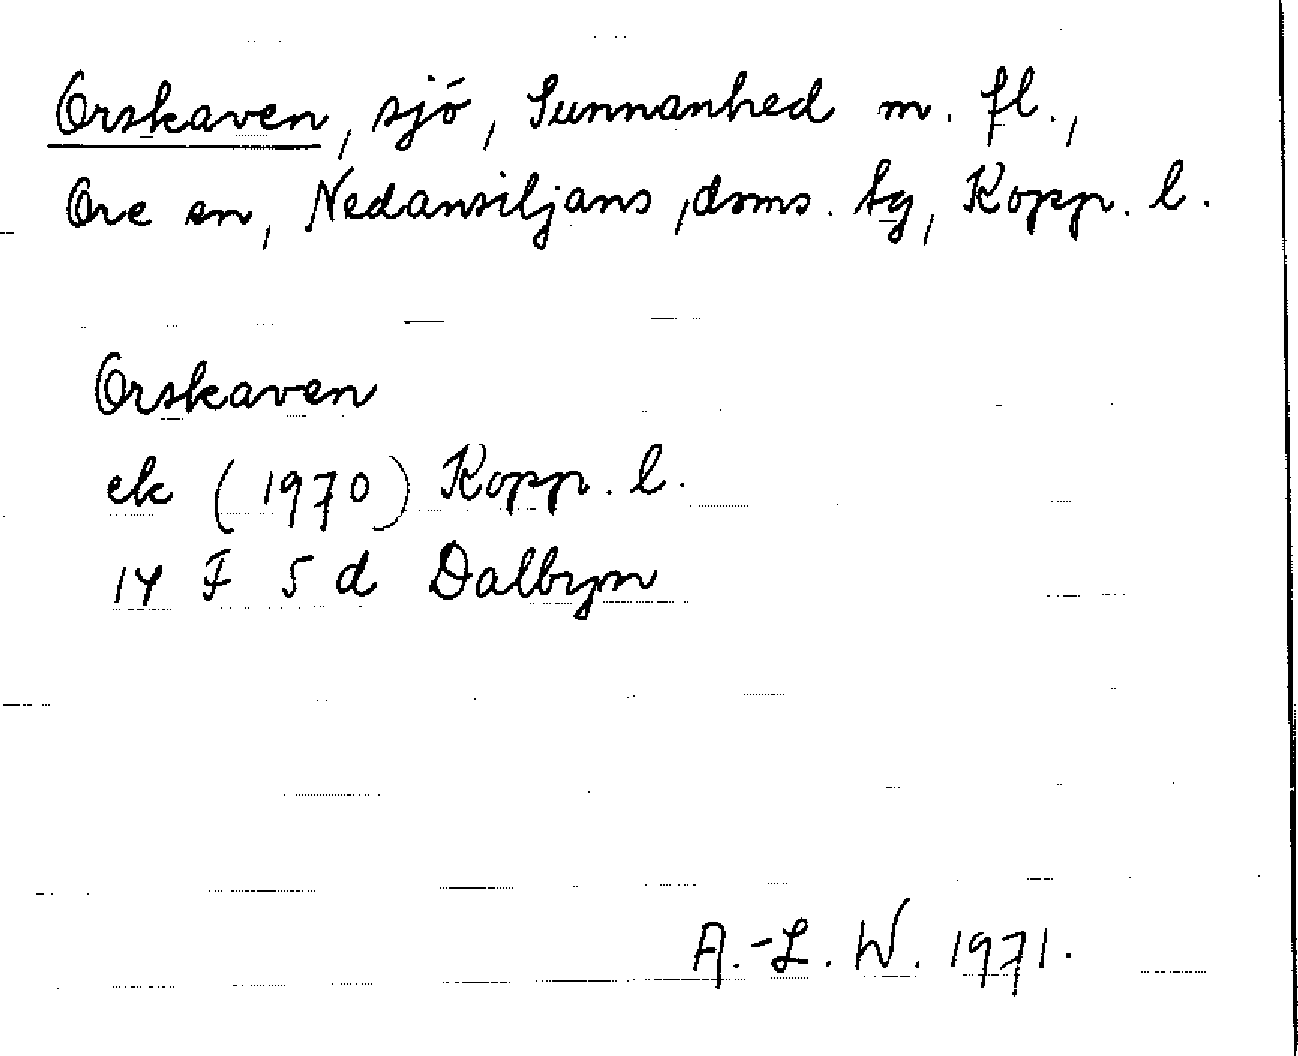 Orskaven, sjö, Sunnanhed m. fl.,
Ore sn, Nedansiljans, doms. tg, Kopp. l.
Orskaven
ek (1970) Kopp. l.
14 F 5 d Dalbyn
A.-L. W. 1971.